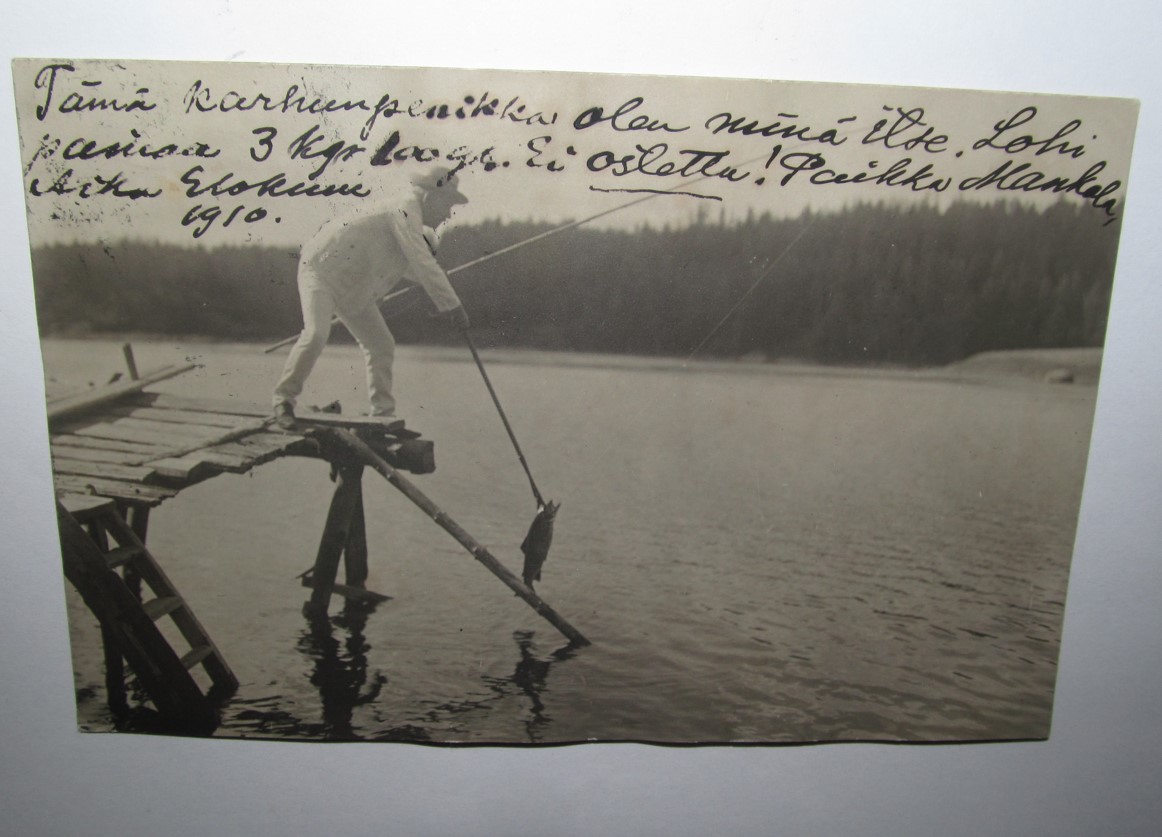 Tämä karhunpenikka olen minä itse. Lohi
painaa 3 kgr 100 gr. Ei ostettu! Paikka Mankala,
Aika Elokuu
1910.